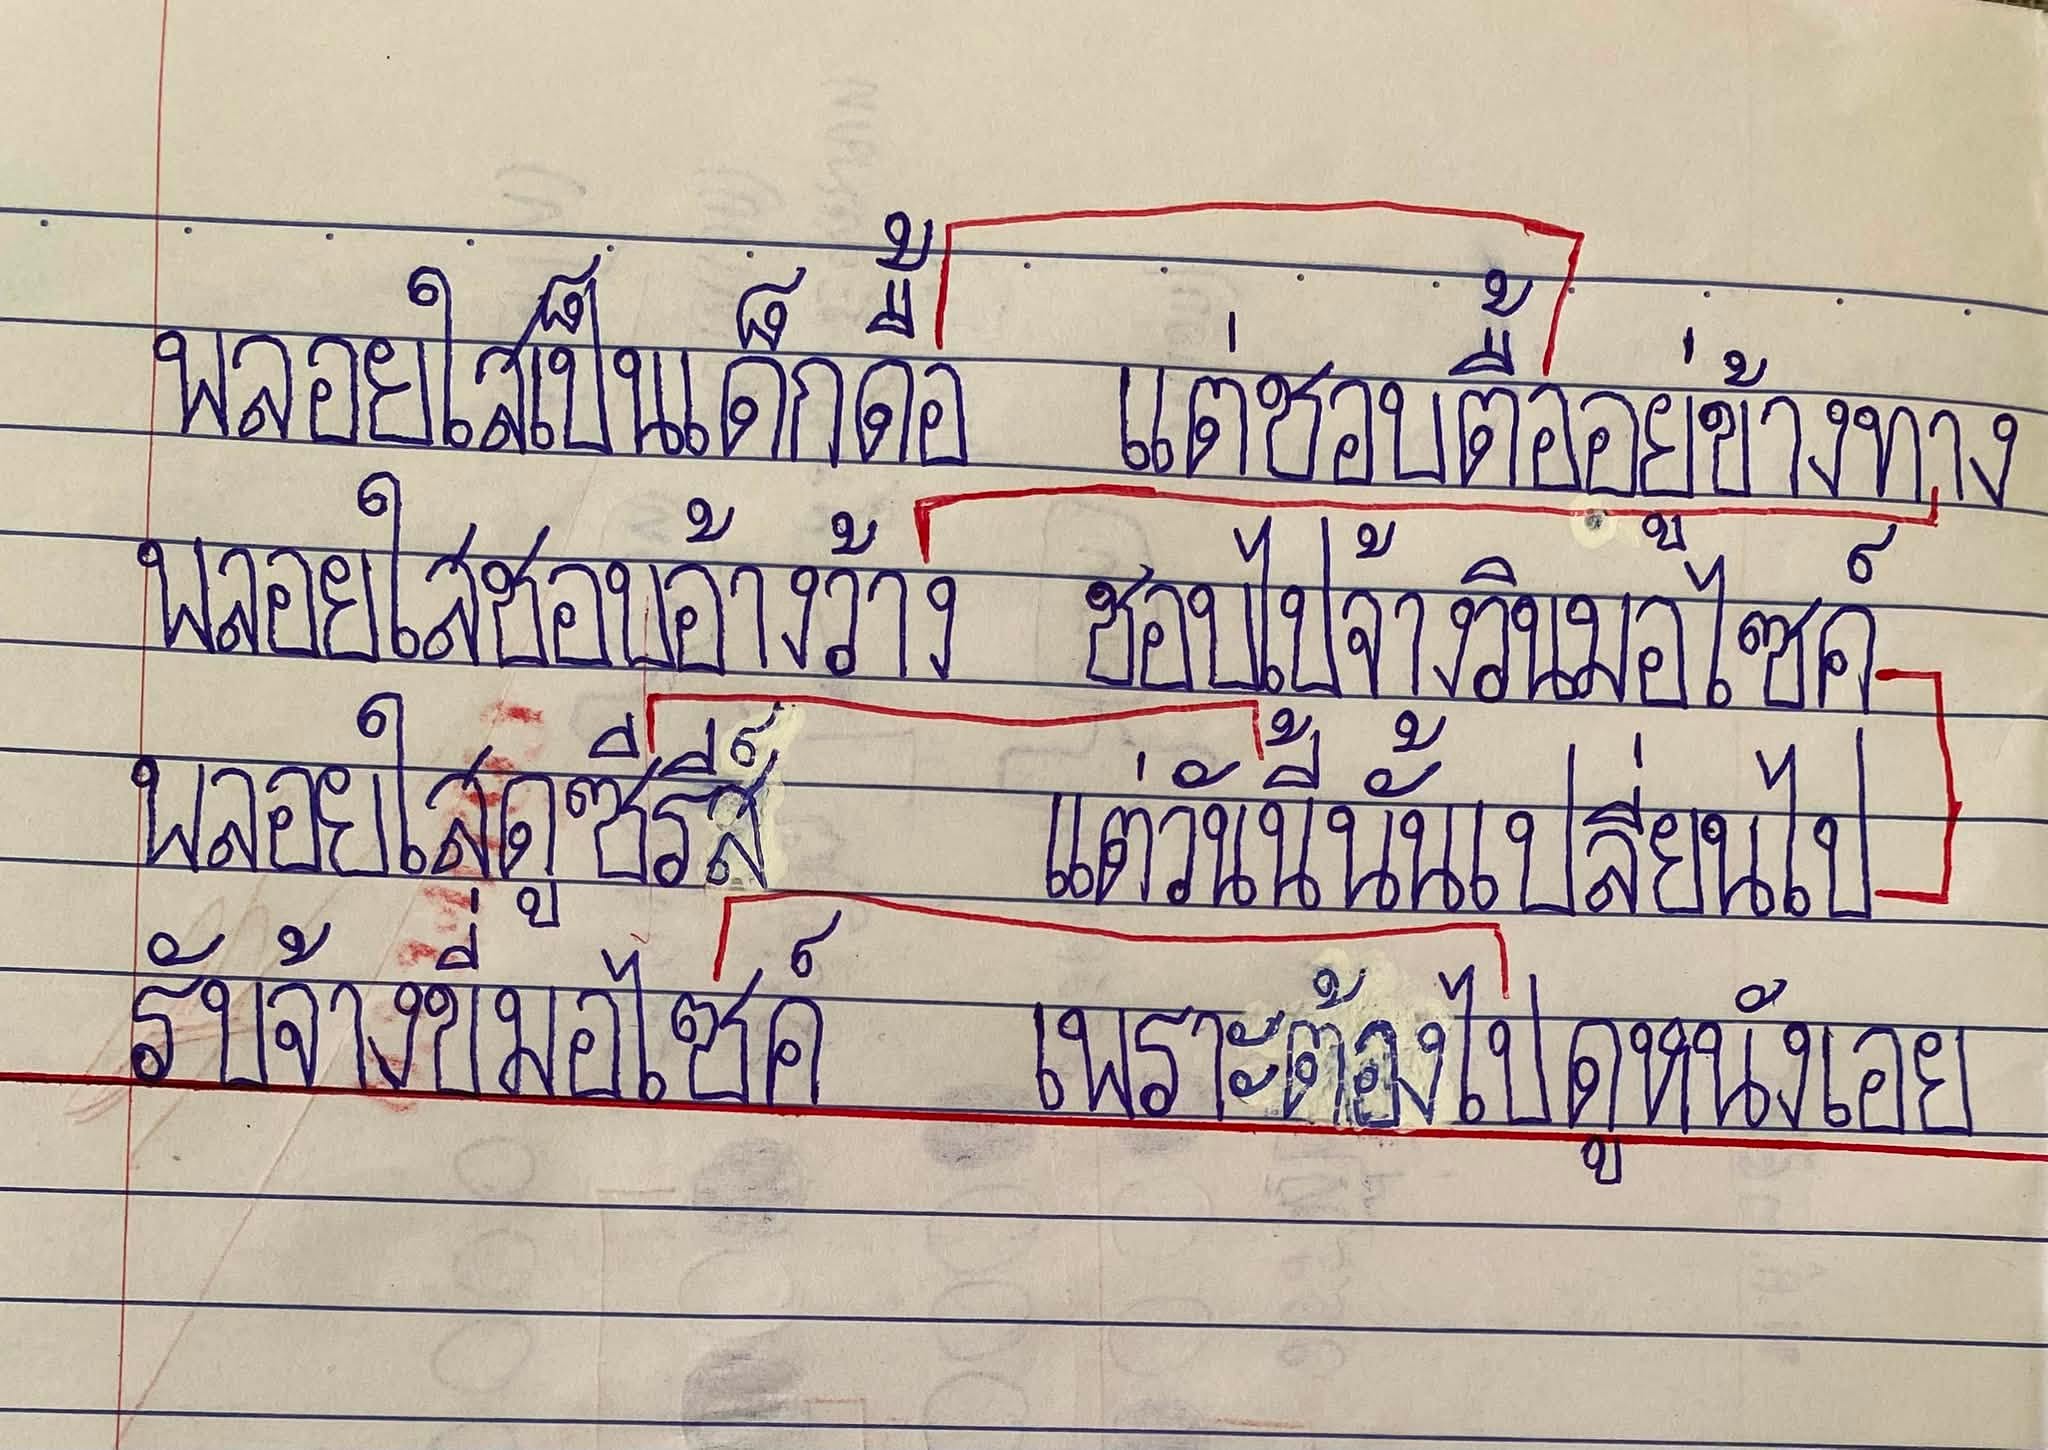 พลอยใสเป็นเด็กดื้อ แต่ชอบตื้ออยู่ข้างทาง
พลอยใสชอบอ้างว้าง ชอบไปจ้างวินมอไซค์
พลอยใสดูซีรีส์ แต่วันนี้นั้นเปลี่ยนไป
รับจ้างขี่มอไซค์ เพราะต้องไปดูหนังเอย